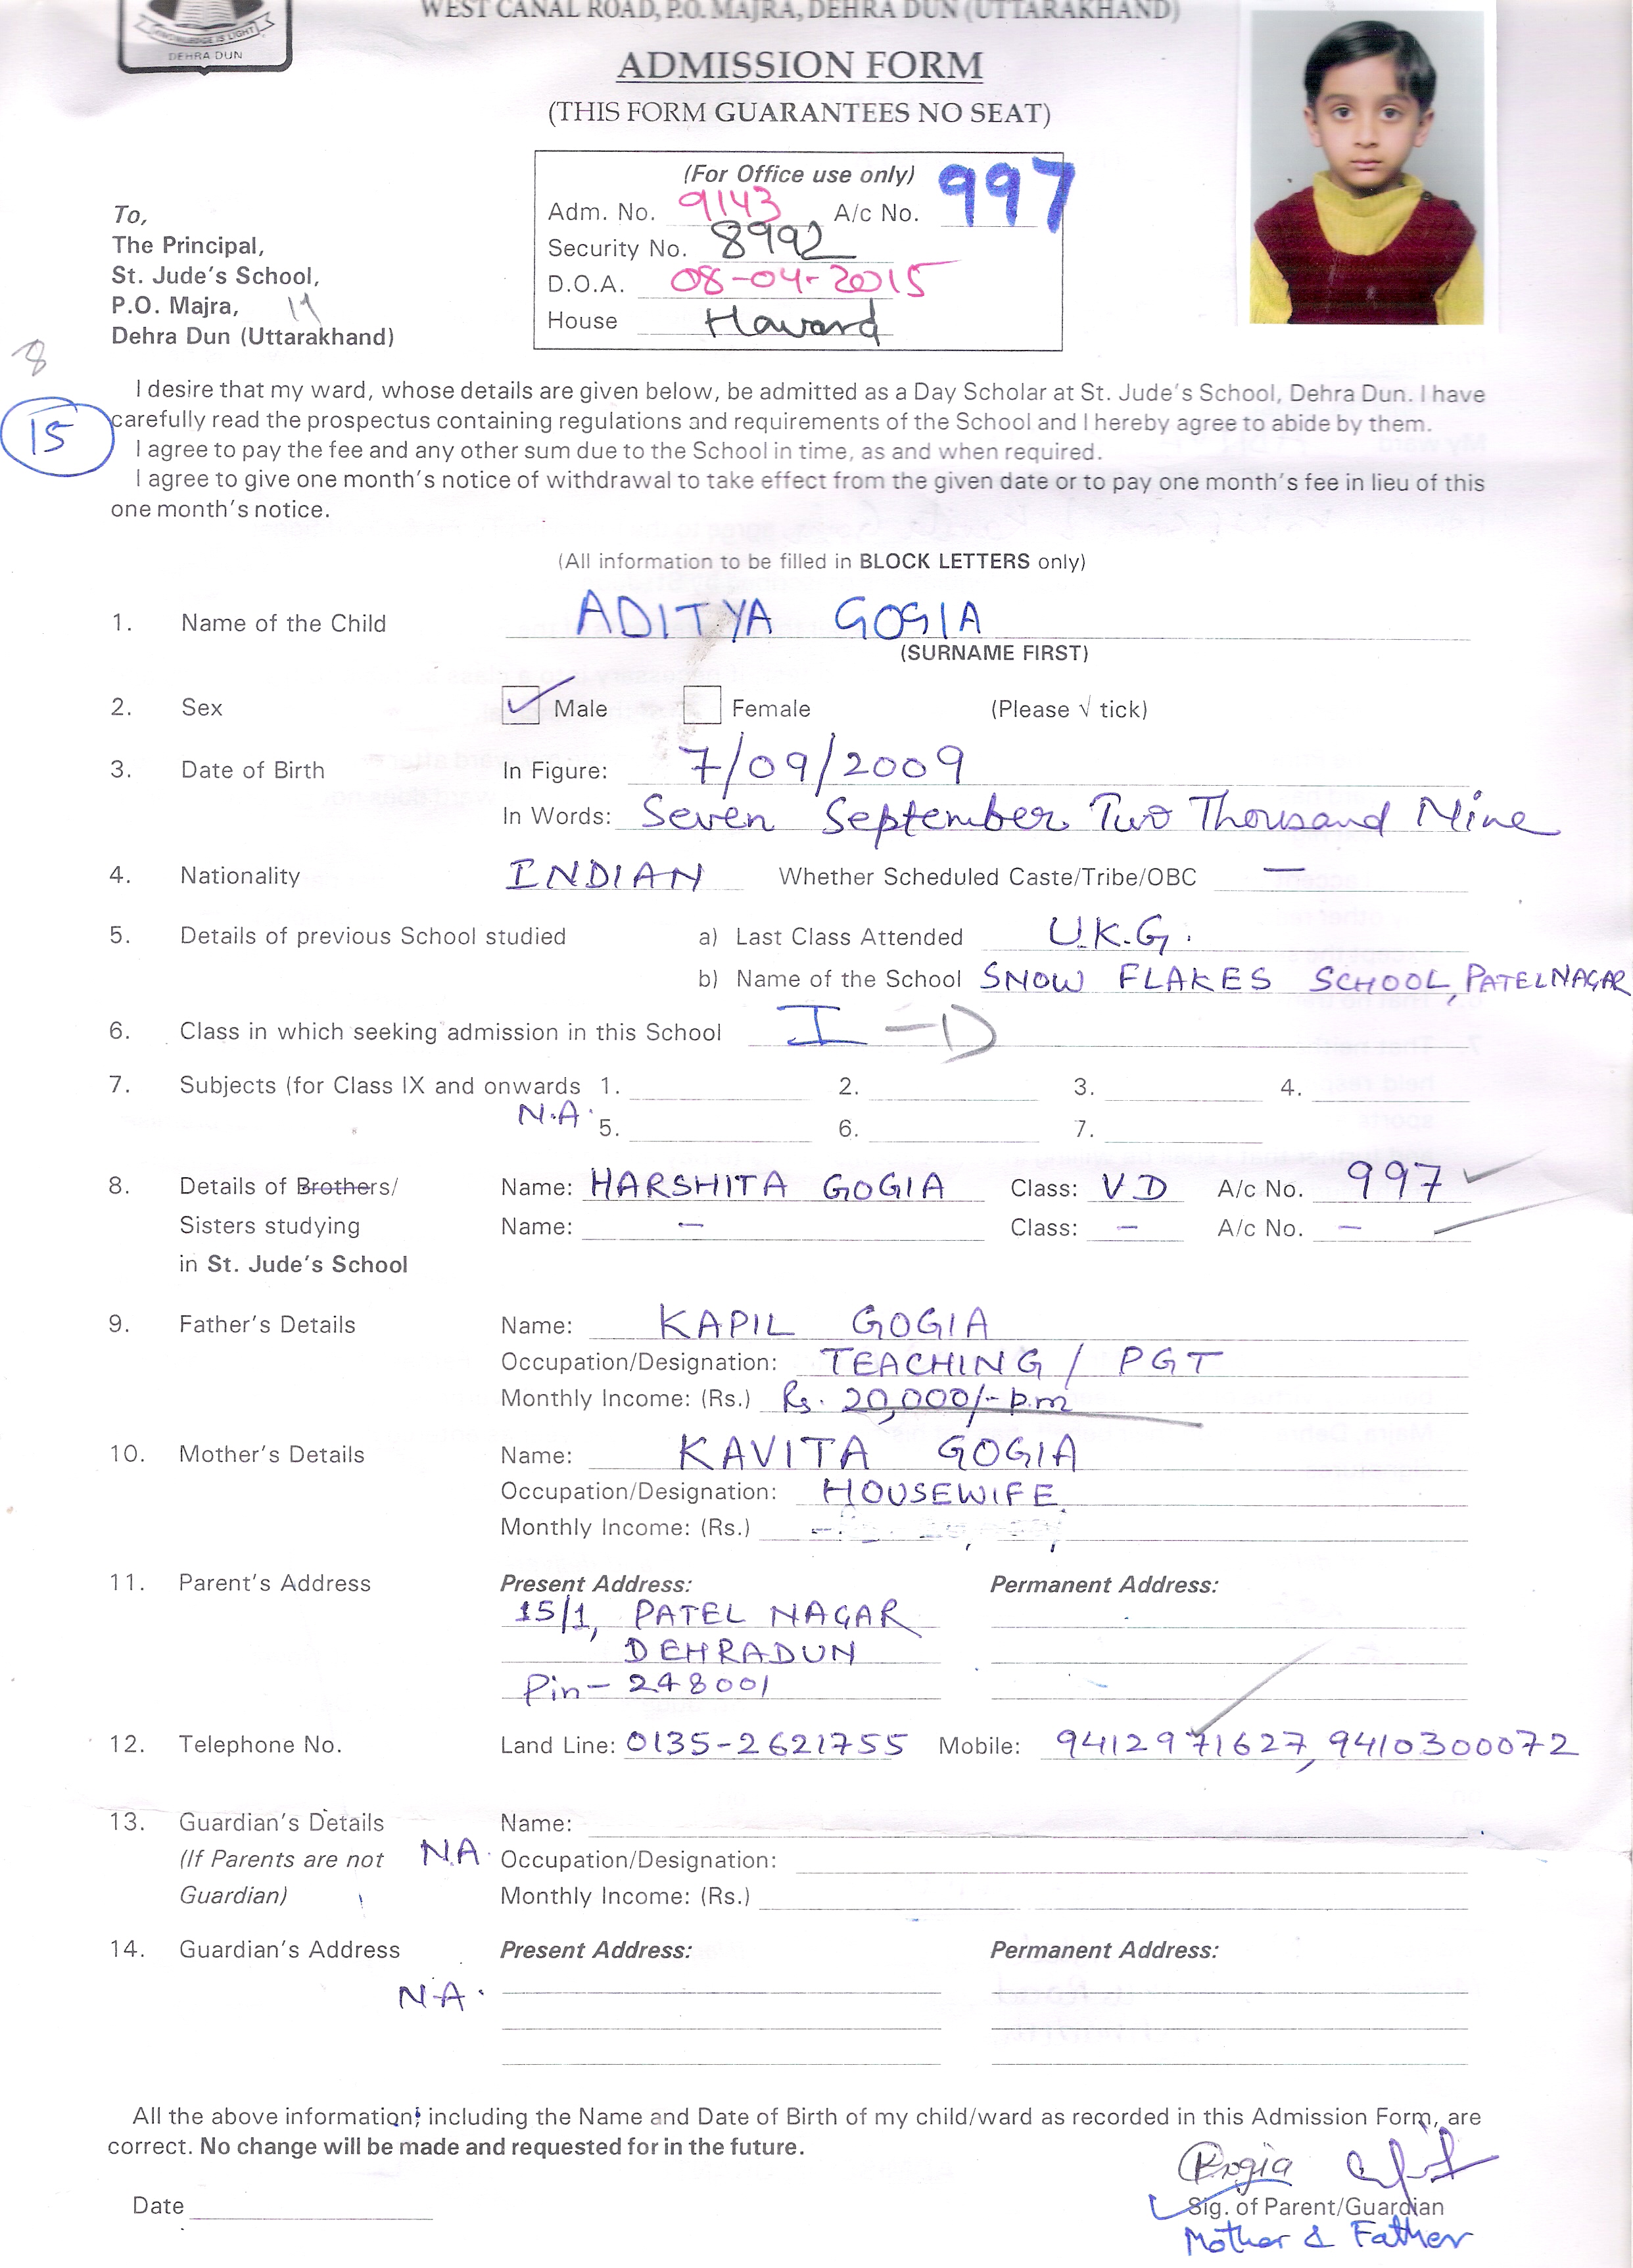 WEST CANAL ROAD, P.O. MAJRA, DEHRA DUN (UTTARAKHAND)
KNOWLEDGE IS LIGHT
DEHRA DUN
ADMISSION FORM
(THIS FORM GUARANTEES NO SEAT)
(For Office use only) 997
Adm. No. 9143 A/c No.
Security No. 8992
D.O.A. 08-04-2015
House Havard
To,
The Principal,
St. Jude's School,
P.O. Majra,
Dehra Dun (Uttarakhand)
8
15
I desire that my ward, whose details are given below, be admitted as a Day Scholar at St. Jude's School, Dehra Dun. I have
carefully read the prospectus containing regulations and requirements of the School and I hereby agree to abide by them.
I agree to pay the fee and any other sum due to the School in time, as and when required.
I agree to give one month's notice of withdrawal to take effect from the given date or to pay one month's fee in lieu of this
one month's notice.
(All information to be filled in BLOCK LETTERS only)
1. Name of the Child ADITYA GOGIA
(SURNAME FIRST)
2. Sex Male Female (Please √ tick)
3. Date of Birth In Figure: 7/09/2009
In Words: Seven September Two Thousand Nine
4. Nationality INDIAN Whether Scheduled Caste/Tribe/OBC —
5. Details of previous School studied a) Last Class Attended U.K.G.
b) Name of the School SNOW FLAKES SCHOOL, PATELNAGAR
6. Class in which seeking admission in this School I - D
7. Subjects (for Class IX and onwards 1. 2. 3. 4.
N.A. 5. 6. 7.
8. Details of Brothers/ Name: HARSHITA GOGIA Class: V D A/c No. 997
Sisters studying Name: — Class: — A/c No. —
in St. Jude's School
9. Father's Details Name: KAPIL GOGIA
Occupation/Designation: TEACHING / PGT
Monthly Income: (Rs.) Rs. 20,000/- p.m
10. Mother's Details Name: KAVITA GOGIA
Occupation/Designation: HOUSEWIFE
Monthly Income: (Rs.)
11. Parent's Address Present Address: Permanent Address:
15/1, PATEL NAGAR
DEHRADUN
Pin- 248001
12. Telephone No. Land Line: 0135-2621755 Mobile: 9412971627, 9410300072
13. Guardian's Details Name:
(If Parents are not N.A. Occupation/Designation:
Guardian) Monthly Income: (Rs.)
14. Guardian's Address Present Address: Permanent Address:
N.A.
All the above information, including the Name and Date of Birth of my child/ward as recorded in this Admission Form, are
correct. No change will be made and requested for in the future.
Date
Sig. of Parent/Guardian
Mother & Father